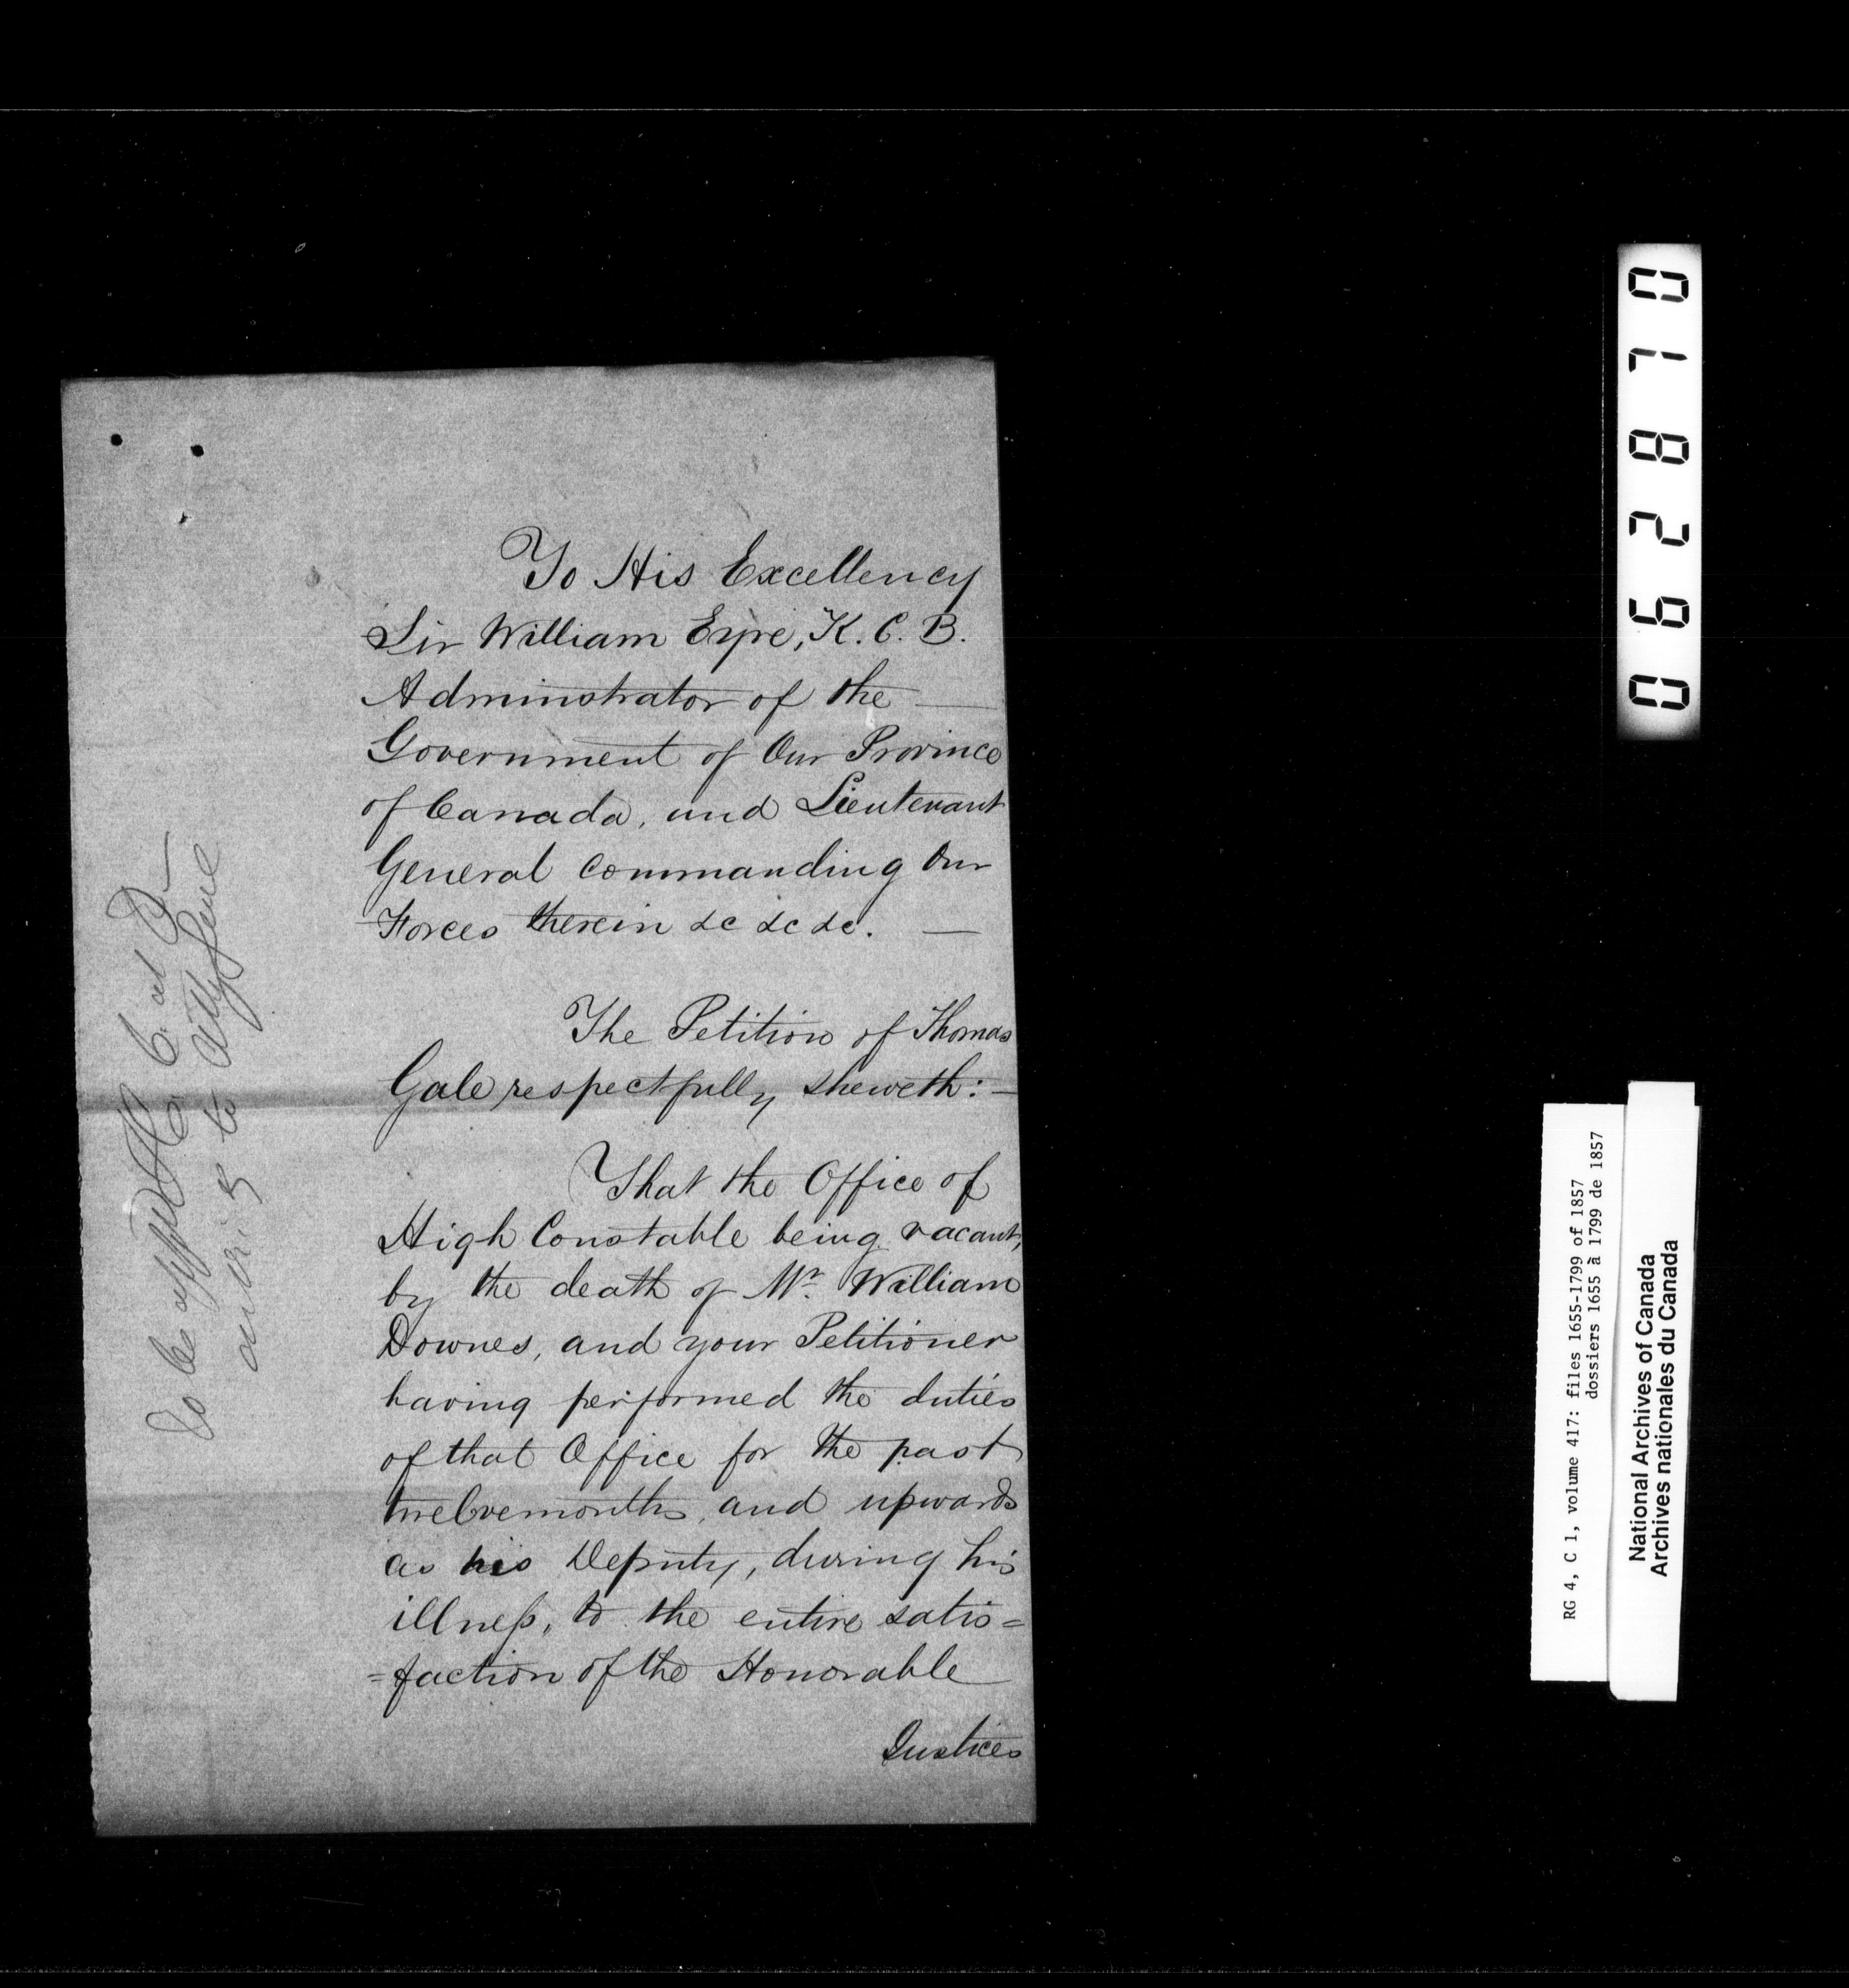 To His Excellency
Sir William Eyre, K. C. B.
Adminstrator of the —
Government of Our Province
of Canada, and Lieutenant
General Commanding Our
Forces therein &c &c &c. —
The Petition of Thomas
Gale respectfully sheweth: —
That the Office of
High Constable being vacant,
by the death of Mr. William
Downes, and your Petitioner
having performed the duties
of that Office for the past
twelvemonths, and upwards
as his Deputy, during his
illness, to the entire satis=
=faction of the Honorable
Justices
To be appd H. C. at
to Atty Genl
062870
RG 4, C 1, volume 417: files 1655-1799 of 1857
dossiers 1655 à 1799 de 1857
National Archives of Canada
Archives nationales du Canada